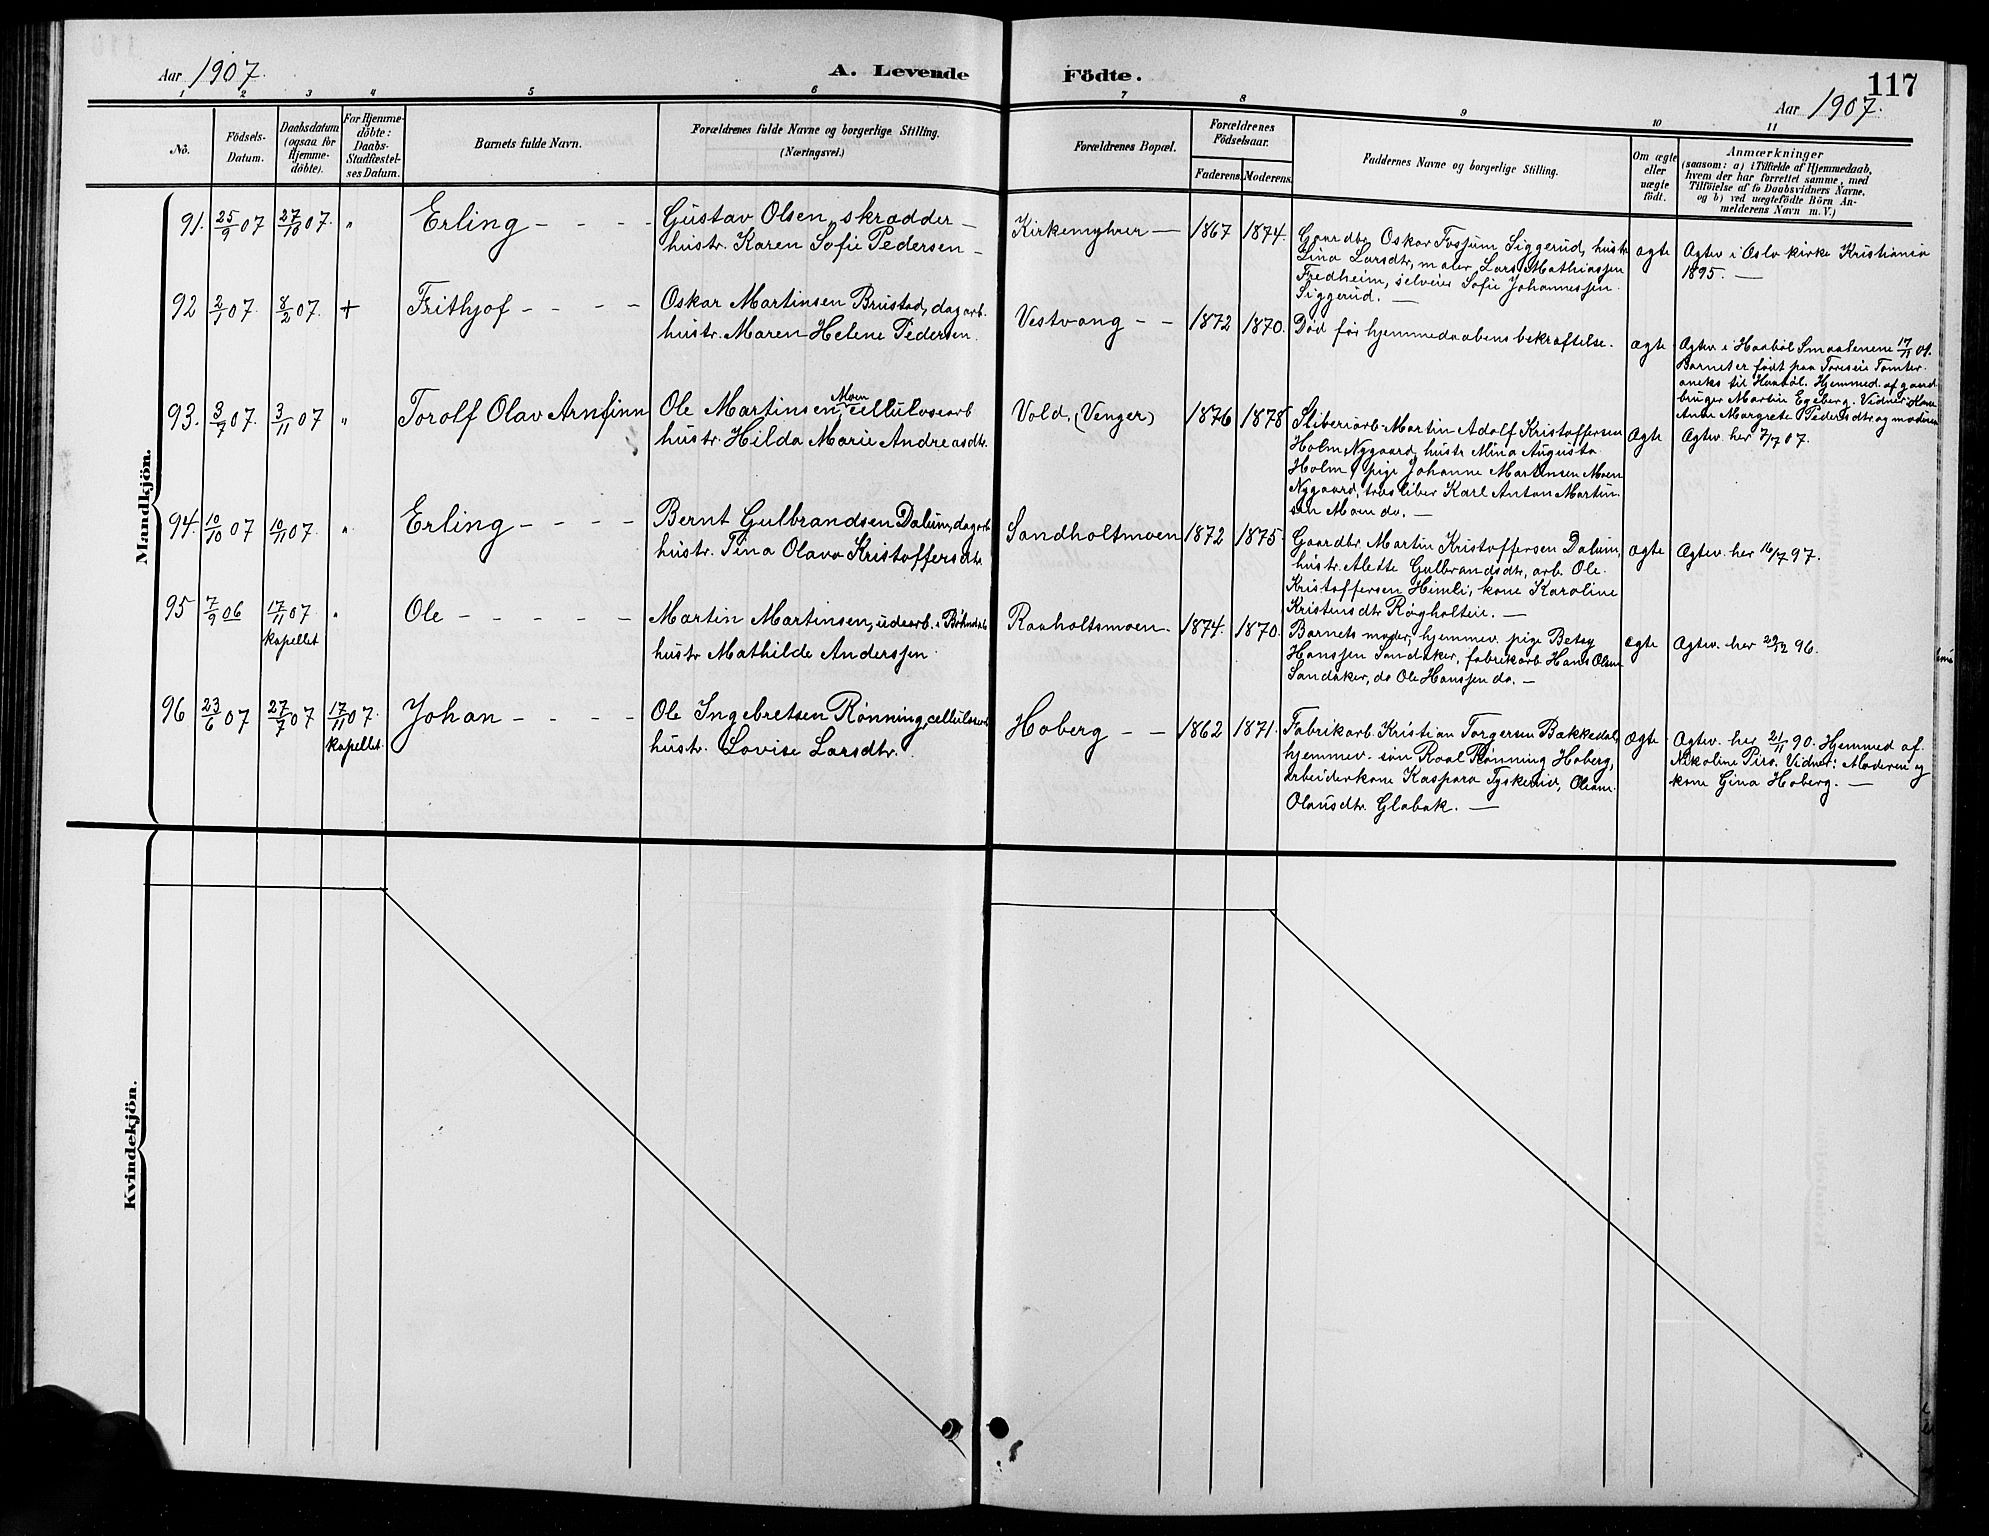 Aar 1907.
A. Levende Födte.
117
Aar 1907.
1 2 3 4 5 6 7 8 9 10 11
No.
Födsels-
Datum.
Daabsdatum
(ogsaa for
Hjemme-
döbte).
For Hjemme-
döbte:
Daabs-
Stadfæstel-
ses Datum.
Barnets fulde Navn.
Forældrenes fulde Navne og borgerlige Stilling.
(Næringsvei.)
Forældrenes Bopæl.
Forældrenes
Födselsaar.
Faderens. Moderens.
Faddernes Navne og borgerlige Stilling.
Om ægte
eller
uægte
födt.
Anmærkninger
(saasom: a) i Tilfælde af Hjemmedaab,
hvem der har forrettet samme, med
Tilföielse af to Daabsvidners Navne,
og b) ved uægtefödte Börn An-
melderens Navn m. V.)
Mandkjön.
91. 25/9 07 27/10 07. " Erling - - - -
Gustav Olsen, skrædder -
hustr. Karen Sofie Pedersen -
Kirkemyhrer - 1867 1874.
Gaardbr. Oskar Fossum Siggerud, hustr.
Lina Larsdtr, maler Lars Mathiassen
Fredheim, selveier Sofie Johannessen
Siggerud. -
ægte
Ægtev. i Oslo kirke Kristiania
1895. -
92 2/1 07. 8/2 07. + Frithjof - - - -
Oskar Martinsen Brustad, dagarb.
hustr. Maren Helene Pedersen.
Vestvang - - 1872 1870.
Død før hjemmedaabens bekræftelse.
ægte
Ægtev. i Haabøl Smaalenene 17/11 01.
Barnet er født paa Tomter
aneks til Haabøl. Hjemmed. af gaard
bruger Martin Egeberg. Vidner: Kone
Anne Margrete Pedersdtr og moderen
93. 3/7 07. 3/11 07 " Torolf Olav Arnfinn
Ole Martinsen Moen cellulosearb
hustr. Hilda Marie Andreasdtr.
Vold, (Venger) 1876 1878
Sliberiarb. Martin Adolf Kristoffersen
Holm Nygaard, hustr Mina Augusta
Holm, pige Johanne Martinsen Moen
Nygaard, træsliber Karl Anton Martin-
sen Moen do. -
Ægte
Ægtev. her 7/7 07.
94. 10/10 07 10/11 07. " Erling - - - -
Bernt Gulbrandsen Dalum, dagarb
hustr. Tina Olava Kristoffersdtr
Sandholtmoen 1872 1875.
Gaardbr. Martin Kristoffersen Dalum,
hustr. Alette Gulbrandsdtr, arb. Ole
Kristoffersen Himli, kone Karoline
Kristensdtr Røgholteie. -
ægte
Ægtev. her 16/7 97.
95 7/9 06 17/11 07 " Ole - - - - -
kapellet
Martin Martinsen, udearb. i Bøhndal.
hustr Mathilde Anderssen.
Raaholtsmoen. 1874. 1870.
Barnets moder, hjemmev. pige Betsy
Hanssen Sandaker, fabrikarb Hans Olsen
Sandaker, do Ole Hanssen do. -
ægte
Ægtev. her 29/12 96.
96 23/6 07 27/7 07 17/11 07. Johan - - - -
kapellet
Ole Ingebretsen Rønning, cellulosearb
hustr. Lovise Larsdtr.
Hoberg - - 1862 1871.
Fabrikarb. Kristian Torgersen Bakkedal,
hjemmev. søn Roal Rønning Hoberg,
arbeiderkone Kaspara Tyskerud,
Olausdtr. Glabak. -
ægte
Ægtev. her 21/11 90. Hjemmed af
Nikoline Pirs. Vidner: Moderen og
kone Gina Hoberg. -
Kvindekjön.